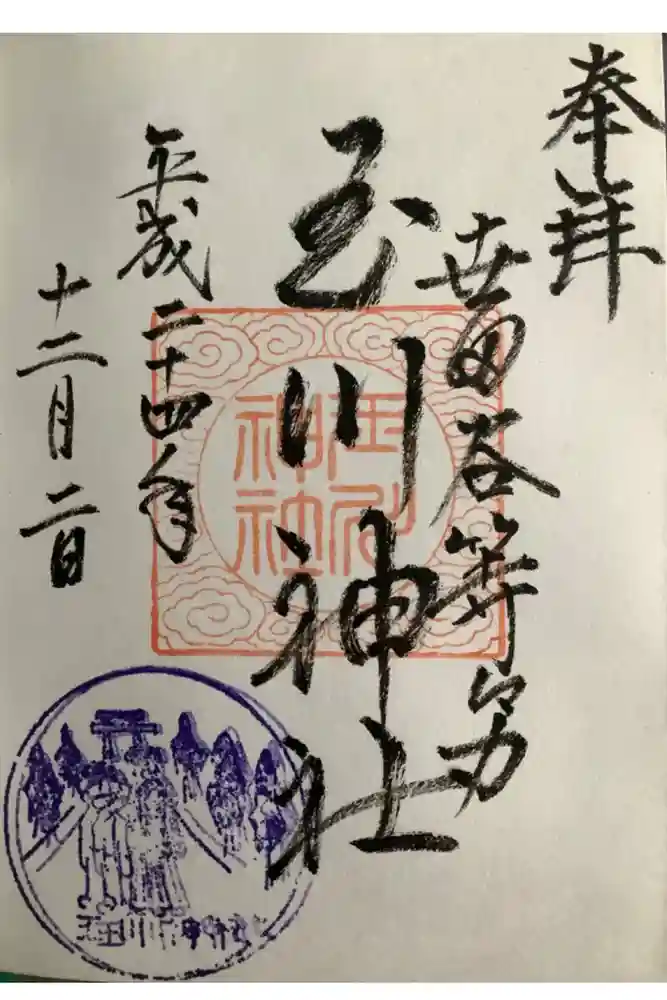 奉拝
世田谷等々力
玉川神社
平成二十四年
十二月二日
玉川神社
玉川神社